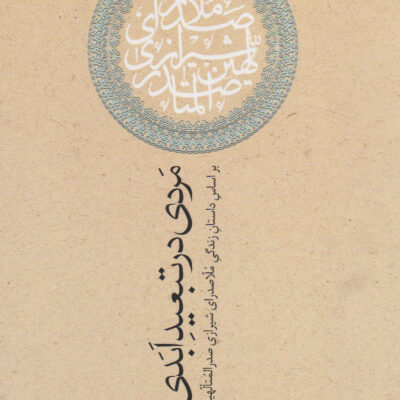 ملاصدرای
شیرازی
صدرالمتألهین
مَردی در تبعیدِ اَبَدی
بر اساس داستانِ زندگیِ مُلاصدرای شیرازی صدرالمُتألهین